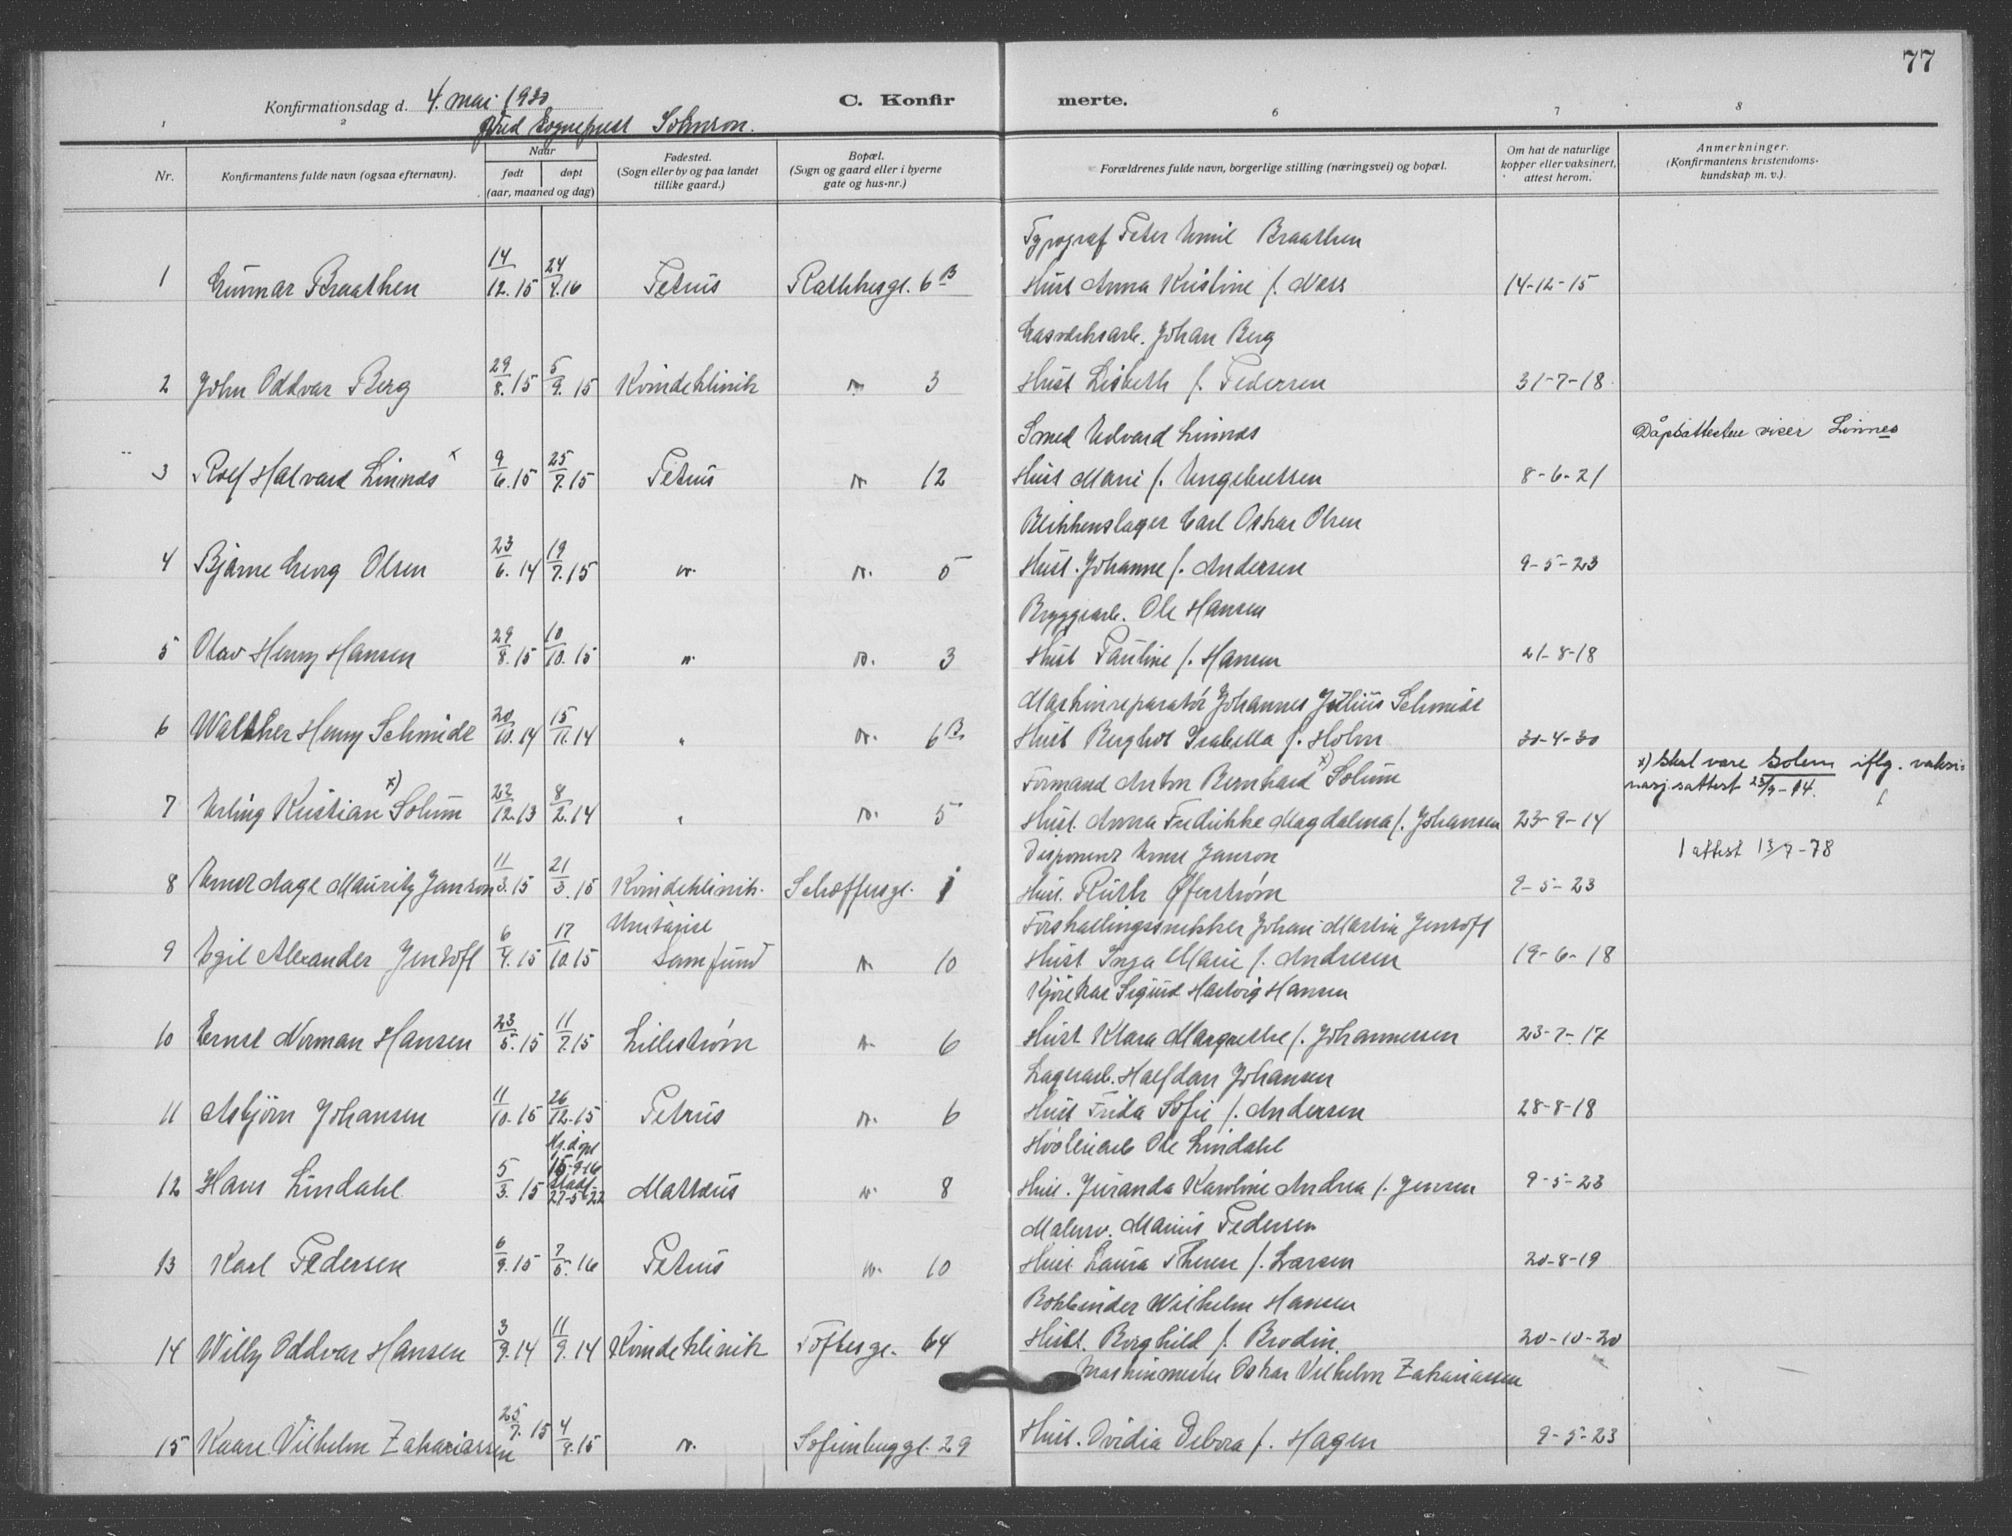 77
Konfirmationsdag d. 4. mai 1930
C. Konfirmerte.
ved Sogneprest Johnson.
1 2 6 7 8
Nr. Konfirmantens fulde navn (ogsaa efternavn). Naar født døpt (aar, maaned og dag) Fødested. (Sogn eller by og paa landet tillike gaard.) Bopæl. (Sogn og gaard eller i byerne gate og hus-nr.) Forældrenes fulde navn, borgerlige stilling (næringsvei) og bopæl. Om hat de naturlige kopper eller vaksinert, attest herom. Anmerkninger. (Konfirmantens kristendomskundskap m. v.).
Typograf Peter Emil Braathen
1 Gunnar Braathen 14/12.15 24/4.16 Petrus Rathkesgt. 6B Hust Anna Kristine f. Næss 14-12-15
Gasverksarb. Johan Berg
2 John Oddvar Berg 29/8.15 5/9.15 Kvindeklinik " 3 Hust Lisbeth f. Pedersen 31-7-18
Smed Edvard Linnæs Dåpsattesten viser Linnes
3 Rolf Halvard Linnæs x 9/6.15 25/7.15 Petrus " 12 Hust Marie f. Engebretsen 8-6-21
Blikkenslager Carl Oskar Olsen
4 Bjarne Georg Olsen 23/6.14 19/7.15 " " 5 Hust. Johanne f. Andersen 9-5-23
Bryggearb. Ole Hansen
5 Olav Henry Hansen 29/8.15 10/10.15 " " 3 Hust Pauline f. Hansen 21-8-18
Maskinreparatør Johannes Julius Schmidt
6 Walther Henry Schmidt 20/10.14 15/11.14 " " 6B Hust Berghot Isabella f. Holm 30-4-30
Formand Anton Bernhard x) Solum x) Skal være Solem iflg. vaksinasj.sattest 23/9-14.
7 Erling Kristian x) Solum 22/12.13 8/2.14 " " 5 Hust. Anna Fredrikke Magdalena f. Johansen 23-9-14
Disponent Ernst Janson 1 attest 13/7-78
8 Ernst Aage Mauritz Janson 11/3.15 21/3.15 Kvindeklinik. Schæffersgt. 1 Hust. Ruth Øferstrøm 9-5-23
Forskallingssnekker Johan Martin Jentoft
9 Egil Alexander Jentoft 6/4.15 17/10.15 Unitarisk Samfund " 10 Hust Inga Marie f. Andresen 19-6-18
Kjørekar Sigurd Hartvig Hansen
10 Ernst Norman Hansen 23/5.15 11/7.15 Lillestrøm " 6 Hust Klara Margrethe f. Johannessen 23-7-17
Lagerarb. Halfdan Johansen
11 Asbjørn Johansen 11/10.15 26/12.15 Petrus " 6 Hust Frida Sofie f. Andersen 28-8-18
Høvleriarb Ole Lindahl
12 Hans Lindahl 5/3.15 Hj.døpt 15-9-16 Stadf. 27-5-22 Matteus " 8 Hust. Juranda Karoline Andrea f. Jensen 9-5-23
Malersv. Marius Pedersen
13 Karl Pedersen 6/9.15 7/5.16 Petrus " 10 Hust. Laura Therese f. Larsen 20-8-19
Bokbinder Wilhelm Hansen
14 Willy Oddvar Hansen 3/9.14 11/9.14 Kvindeklinik Toftesgt. 64 Hust. Borghild f. Brodin. 20-10-20
Maskinmester Oskar Vilhelm Zakariassen
15 Kaare Vilhelm Zakariassen 25/7.15 4/8.15 " Sofienberggt. 29 Hust. Ovidia Debora f. Hagen 9-5-23